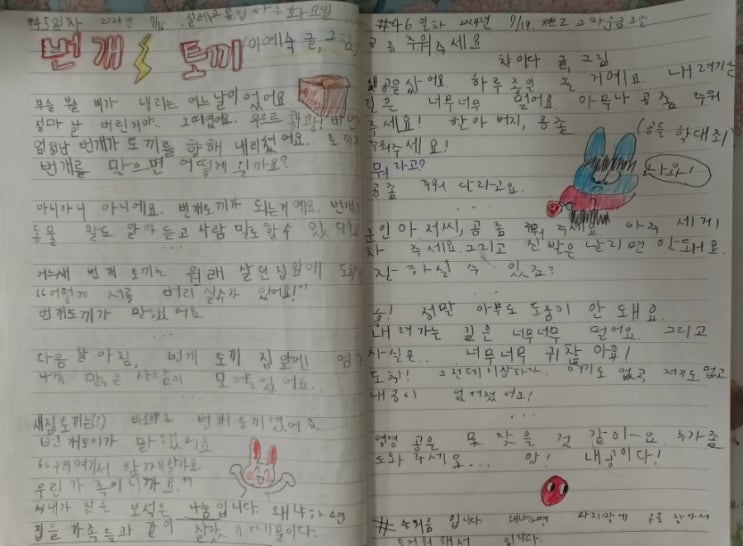 #45일차 2024년 7/16 화요일
번개 토끼 (이예숙 글, 그림)
부슬 부슬 비가 내리는 어느 날이었어요.
설마 날 버린거야.. 그때였어요. 우르르 쾅쾅!
엄청난 번개가 토끼를 향해 내리쳤어요.
번개를 맞으면 어떻게 될까요?
...
아니아니 아니에요. 번개토끼가 되는거예요. 번개
동물 말도 알아듣고 사람 말도 할 수 있
...
어느새 번개 토끼는 원래 살던 집앞에
"어떻게 저를 버리실수가 있어요!"
번개토끼가 말했어요
...
다음 날 아침, 번개 토끼 집앞에
많은 사람이
새집토끼는(?) 바로바로 번개토끼였어요
번개토끼가 말했어요
"우리 여기서 함께 살아요
우린 가족이니까요."
내가 찾은 보석은 나눔입니다. 왜냐하면
집을 가족들과 같이 살았기 때문이다.
#46일차 2024년 7/19.
공좀 주워주세요
차야다 글, 그림
새공을 샀어요. 하루 종일 놀 거예요. 내려가는
길은 너무너무 멀어요. 아무나 공좀 주워
주세요! 할아버지, 공좀
주워주세요!
(공들 학대죄)
뭐라고?
나와!
공좀 주워 달라고요.
...
군인 아저씨, 공좀 주세요. 아주 세게
차 주세요. 그리고 신발은 날리면 안돼요.
잘 하실 수 있죠?
...
흥! 정말 아무도 도움이 안 돼요.
내려가는 길은 너무너무 멀어요. 그리고
사실은.. 너무너무 귀찮아요!
도착! 그런데 이상하다. 여기도 없고, 저기도 없고
내공이 없어졌어요!
...
영영 공은 못 찾을 것 같아~요. 누가좀
도와주세요... 앗! 내공이다!
# 입니다. 왜냐하면 마지막에 공을 찾아서
입니다.